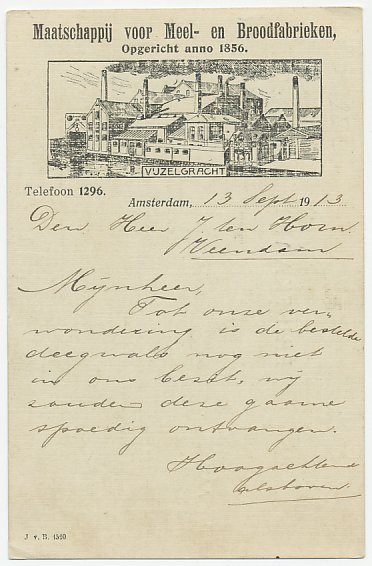 Maatschappij voor Meel- en Broodfabrieken,
Opgericht anno 1856.
VIJZELGRACHT
Telefoon 1296.
Amsterdam, 13 Sept 1913
Den Heer J. ten Horn
Veendam
Mijnheer,
Tot onze ver„
wondering is de bestelde
deegwals nog niet
in ons bezit, wij
zouden deze gaarne
spoedig ontvangen.
Hoogachtend
alsboven
J. v. B. 4540